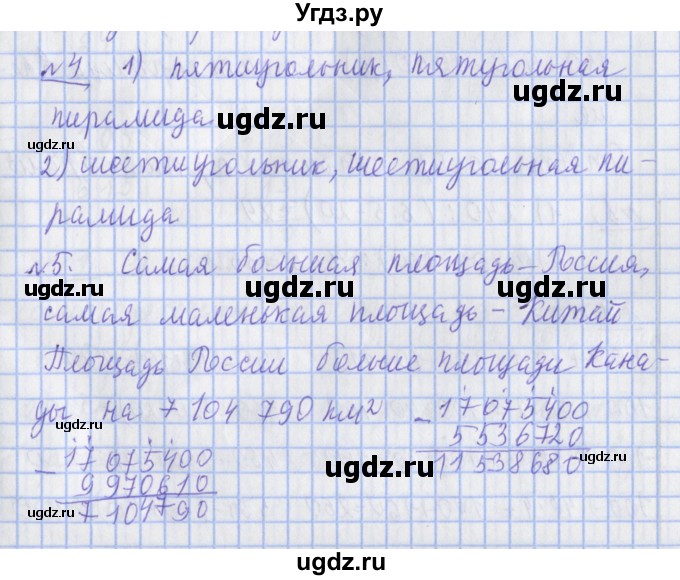 Угдз.ру
№4 1) пятиугольник, пятугольная
ugdz.ru
пирамида
ugdz.ru
ugdz.ru
2) шестиугольник, шестиугольная пи-
рамида
ugdz.ru
№5. Самая большая площадь – Россия,
ugdz.ru
ugdz.ru
самая маленькая площадь – Китай
Площадь России больше площади Кана-
ugdz.ru
ды на 7 104 790 км2
- 17075400
5536720
11538680
- 17075400
9970610
7104790
ugdz.ru
ugdz.ru
ugdz.ru
ugdz.ru
ugdz.ru